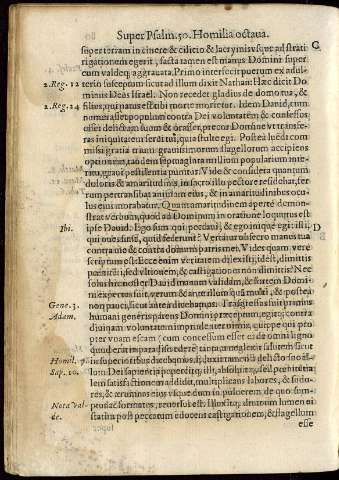 Super Psalm. 50. Homilia octaua.
superteriam in cinere & cilicio & lacrymis vsque ad strati
rigationem egerit, facta tamen est manus Domini super
cum valdeq; aggrauata. Primo interfecit puerum ex adul-
2. Reg. 12 terio susceptum sicut ad illum dixit Nathan: Hæc dicit Do
minus Deus Israel. Non recedet gladius de domo tua, &
2. Reg. 24 filius, qui natus est tibi morte morietur. Idem Dauid, cum
numerasset populum contra Dei voluntatem & confessus
esset delictum suum & orasset, precor Domine vt transfe-
ras iniquitatem serui tui, quia stulte egi. Postea
missi gratia trium grauissimorum flagellorum accipiens
optionem, tandem septuaginta millium popularium interi-
tu, graui pestilentia punitur. Vide & considera quantum
doloris & amaritudinis, in sacro illo pectore residebat, fer
rum pertransibat animam eius, & in amaritudinibus ocu-
lus eius morabatur. Quantam amaritudinem aperte demon-
strat verbum, quod ad Dominum in oratione loquutus est
Ibi. ipse Dauid: Ego sum qui peccaui, & ego inique egi: isti,
qui oues sunt, quid fecerunt? Vertatur obsecro manus tua
contra me & contra domum patris mei. Vides quam vere
scriptum est: Ecce enim veritatem dilexisti, idest, dimittis
pœnitenti, sed vltionem, & castigationes non dimittis? Nec
solus hic noster Dauid manum validam, & fortem Domi-
ni expertus fuit, verum & ante illum quā multi, & postea
Gene. 3. non pauci, sicut ante diucebamus. Trasgressus fuit primus
Adam. humani generis parens Domini præceptum, egitq; contra
diuinam voluntatem improuide ter nimis, quippe qui pro
pter vnam escam (cum concessum esset de omni ligno
quod erat in paradiso edere) tanta neglexit salutem sicut
Homil. 7. in superioribus docebamus, & lux tamen delicto suo il-
Sap. 10. lum Dei sapientia pepercitq; illi, absoluit, sed
lem satisfactionem addidit, multiplicans labores, & sudo-
res, & ærumnas eius vsque dum in puluerem de quo sum-
Nota val- ptus ac formatus, reuersus est. Illuxit, diuinum lumen ei
de. statim post peccatum educens castigationem, & flagellum
esse
C
D